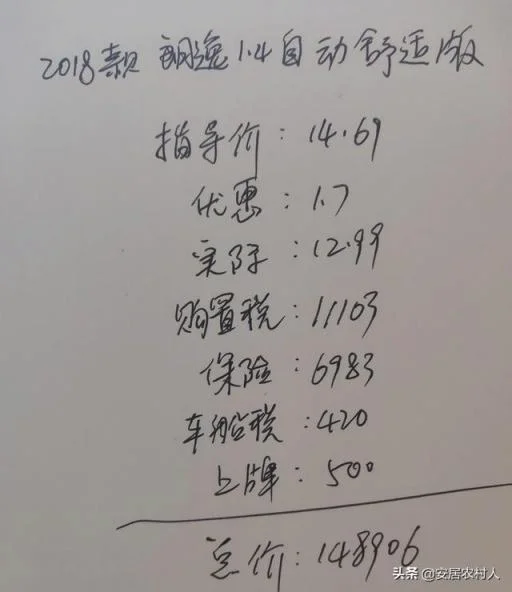 2018款 朗逸1.4自动舒适版
指导价:14.69
优惠:1.7
实际:12.99
购置税:11103
保险:6983
车船税:420
上牌:500
总价:148906
头条 @安居农村人